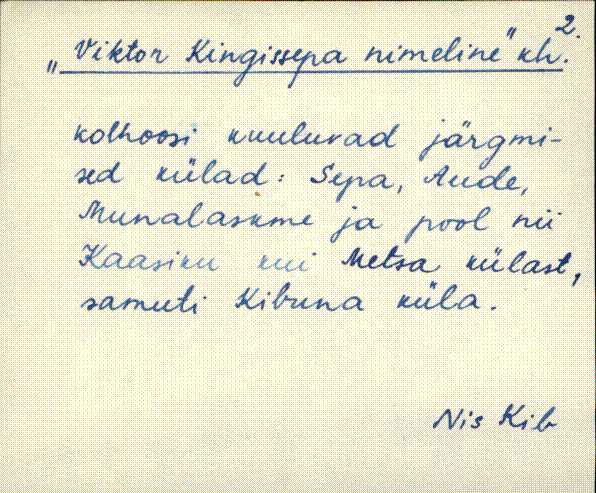 2.
„Viktor Kingissepa nimeline" kh.
kolhoosi kuuluvad järgmi-
sed külad: Sepa, Aude,
Munalaskme ja pool nii
Kaasiku kui Metsa külast,
samuti Kibuna küla.
Nis Kib